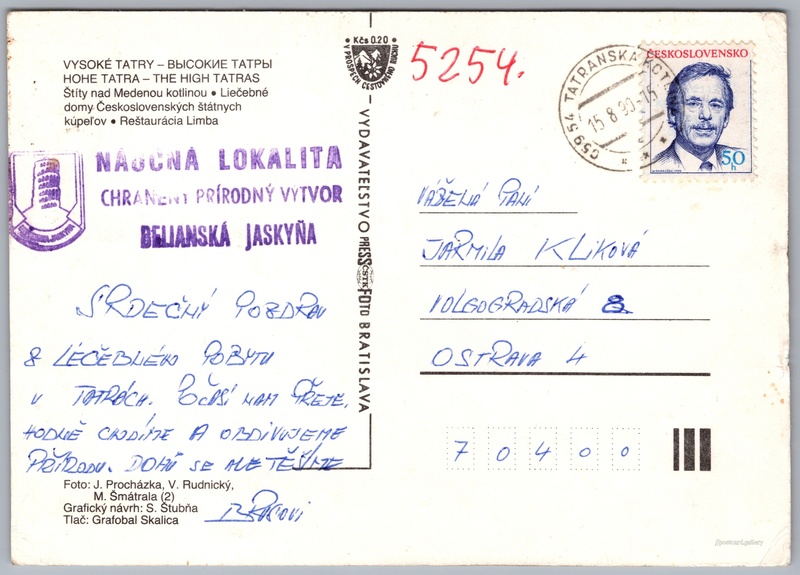 VYSOKÉ TATRY – ВЫСОКИЕ ТАТРЫ
HOHE TATRA – THE HIGH TATRAS
Štíty nad Medenou kotlinou • Liečebné
domy Československých štátnych
kúpeľov • Reštaurácia Limba
NÁUČNÁ LOKALITA
CHRÁNENÝ PRÍRODNÝ VÝTVOR
BELIANSKÁ JASKYŇA
SRDEČNÝ POZDRAV
Z LÉČEBNÉHO POBYTU
V TATRÁCH. POČASÍ NÁM PŘEJE,
HODNĚ CHODÍME A OBDIVUJEME
PŘÍRODU. DOMŮ SE ALE TĚŠÍME
Foto: J. Procházka, V. Rudnický,
M. Šmátrala (2)
Grafický návrh: S. Štubňa
Tlač: Grafobal Skalica
Kčs 0.20
V PROSPECH CESTOVNÉHO RUCHU
VYDAVATEĽSTVO PRESSFOTO BRATISLAVA
ČSTK
5254.
059 54 TATRANSKÁ KOTLINA
15.8.90-15
ČESKOSLOVENSKO
50 h
VÁŽENÁ PANÍ
JARMILA KLIKOVÁ
VOLGOGRADSKÁ
OSTRAVA 4
7 0 4 0 0